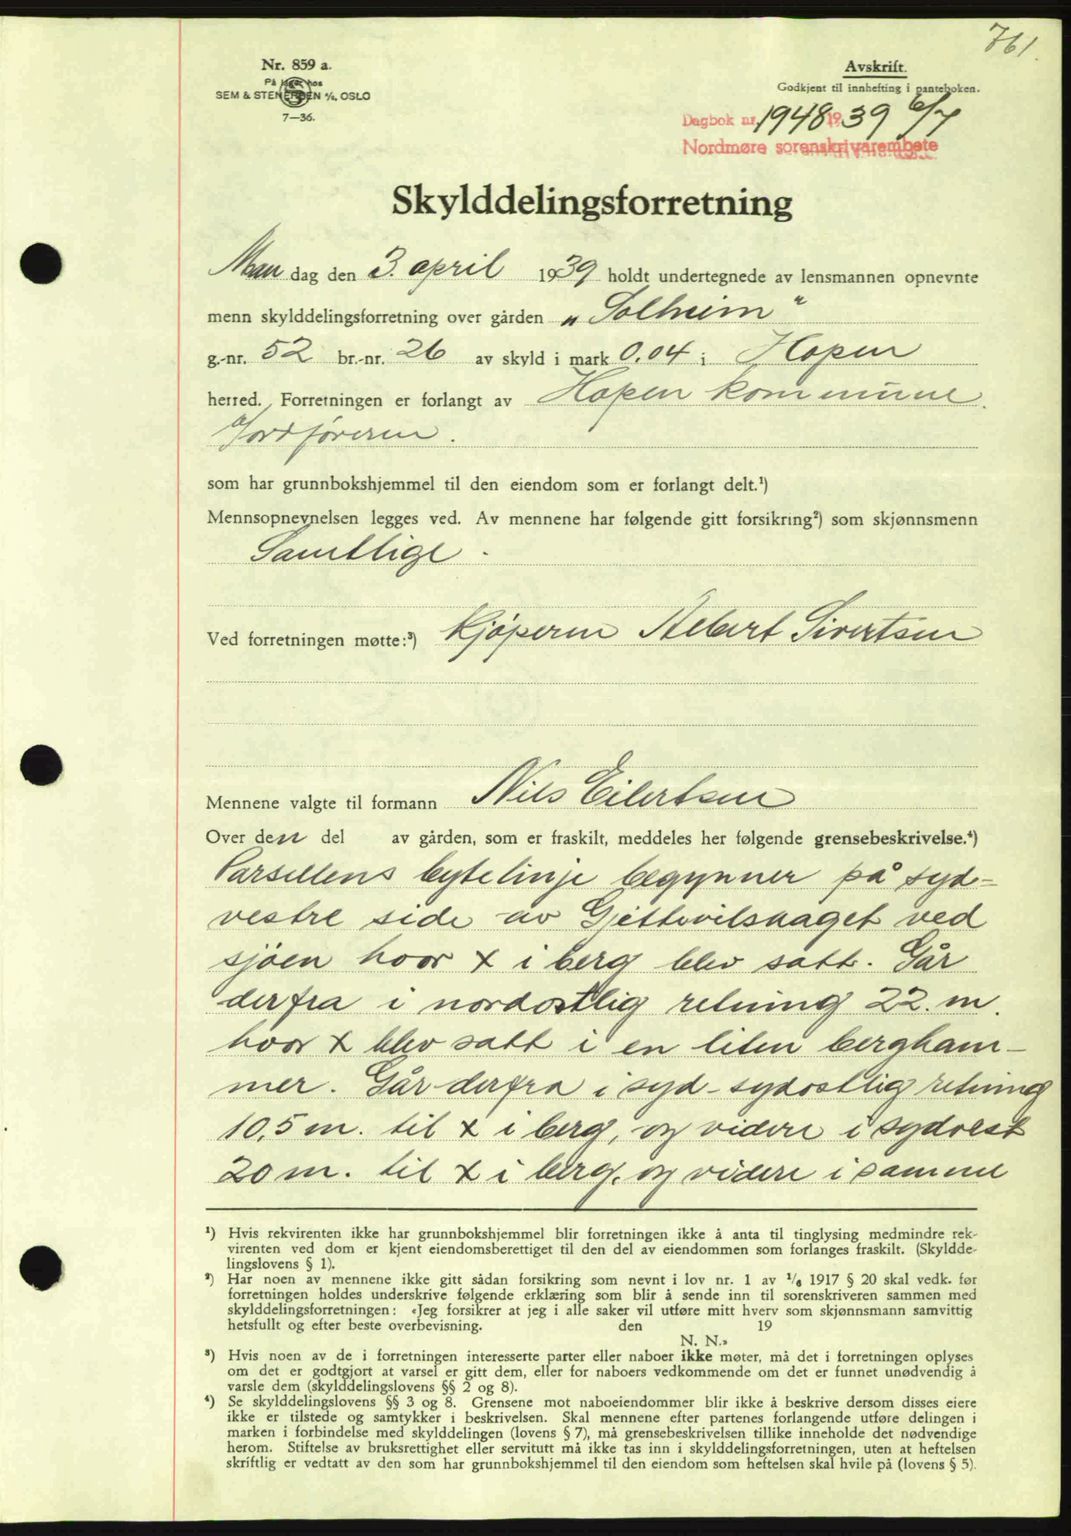 761.
Nr. 859 a.
På lager hos
SEM & STENERSEN A/S, OSLO
7—36.
Avskrift.
Godkjent til innhefting i panteboken.
Dagbok nr. 1948 1939 6/7
Nordmøre sorenskriverembete
Skylddelingsforretning
Man dag den 3. april 1939 holdt undertegnede av lensmannen opnevnte
menn skylddelingsforretning over gården „Solheim"
g.-nr. 52 br.-nr. 26 av skyld i mark 0,04 i Hopen
herred. Forretningen er forlangt av Hopen kommune.
v/ordføreren.
som har grunnbokshjemmel til den eiendom som er forlangt delt.¹)
Mennsopnevnelsen legges ved. Av mennene har følgende gitt forsikring²) som skjønnsmenn
Samtlige.
Ved forretningen møtte:³) Kjøperen Albert Sivertsen
Mennene valgte til formann Nils Eilertsen
Over den del av gården, som er fraskilt, meddeles her følgende grensebeskrivelse.⁴)
Parsellens bytelinje begynner på syd-
vestre side av ved
sjøen hvor x i berg blev satt. Går
derfra i nordostlig retning 22. m.
hvor x blev satt i en liten bergham-
mer. Går derfra i syd-sydostlig retning
10,5 m. til x i berg, og videre i sydvest
20 m. til x i berg, og videre i samme
¹) Hvis rekvirenten ikke har grunnbokshjemmel blir forretningen ikke å anta til tinglysing medmindre rek-
virenten ved dom er kjent eiendomsberettiget til den del av eiendommen som forlanges fraskilt. (Skyldde-
lingslovens § 1).
²) Har noen av mennene ikke gitt sådan forsikring som nevnt i lov nr. 1 av 1/6 1917 § 20 skal vedk. før
forretningen holdes underskrive følgende erklæring som blir å sende inn til sorenskriveren sammen med
skylddelingsforretningen: «Jeg forsikrer at jeg i alle saker vil utføre mitt hverv som skjønnsmann samvittig
hetsfullt og efter beste overbevisning. den 19
N. N.»
³) Hvis noen av de i forretningen interesserte parter eller naboer ikke møter, må det i forretningen oplyses
om det er godtgjort at varsel er gitt dem, eller for naboers vedkommende om det er funnet unødvendig å
varsle dem (skylddelingslovens §§ 2 og 8).
⁴) Se skylddelingslovens §§ 3 og 8. Grensene mot naboeiendommer blir ikke å beskrive dersom disses eiere
ikke er tilstede og samtykker i beskrivelsen. Skal mennene efter partenes forlangende utføre delingen i
marken i forbindelse med skylddelingen (lovens § 7), må grensebeskrivelsen tillike inneholde det nødvendige
herom. Stiftelse av bruksrettighet eller servitutt må ikke tas inn i skylddelingsforretningen, uten at heftelsen
skriftlig er vedtatt av den som har grunnbokshjemmel til den eiendom som heftelsen skal hvile på (lovens § 5).